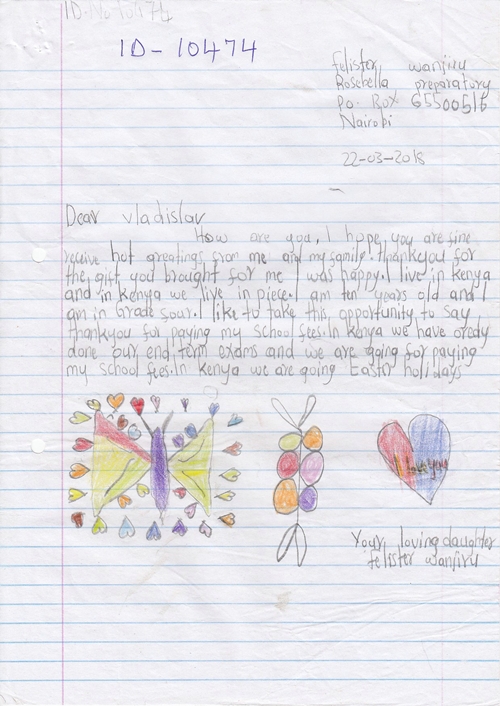 ID-No 10474
ID-10474
felister wanjiru
Rosebella preparatory
Po. Box 6550051b
Nairobi
22-03-2018
Dear vladislav
How are you, I hope you are fine
receive hot greatings from me and my family. Thankyou for
the gift you brought for me I was happy. I live in kenya
and in kenya we live in piece. I am ten years old and I
am in Grade sour. I like to take this, opportunity to say
thankyou for paying my school fees. In kenya we have oredy
done our end term exams and we are going for paying
my school fees. In kenya we are going Easter holidays
I love you
Your loving daughter
felister wanjiru